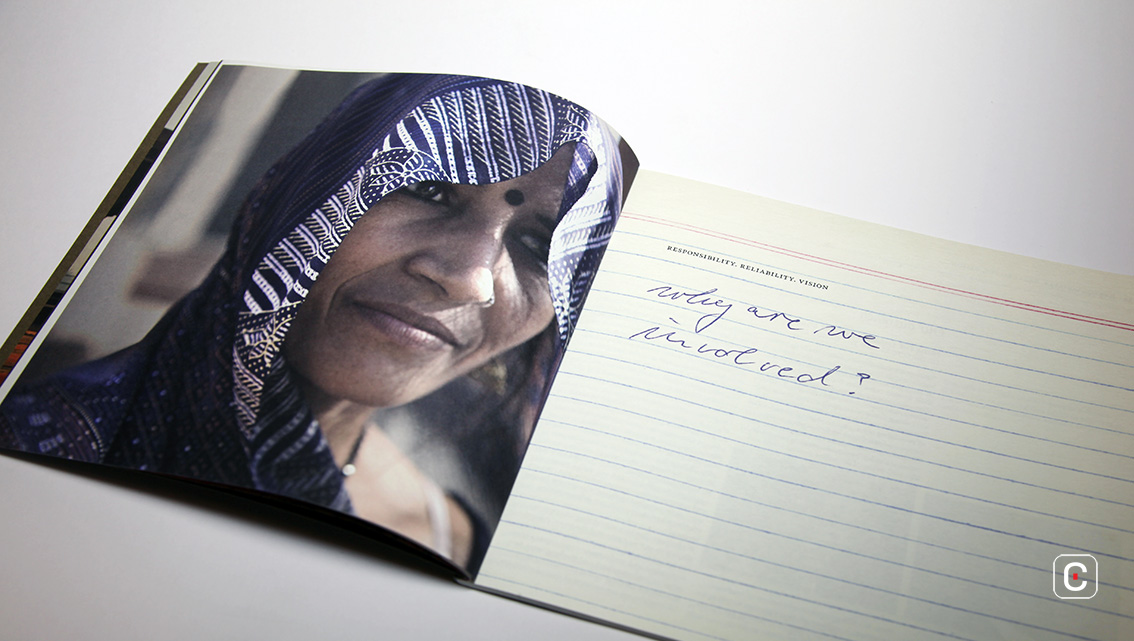 RESPONSIBILITY. RELIABILITY. VISION
why are we
involved?
C